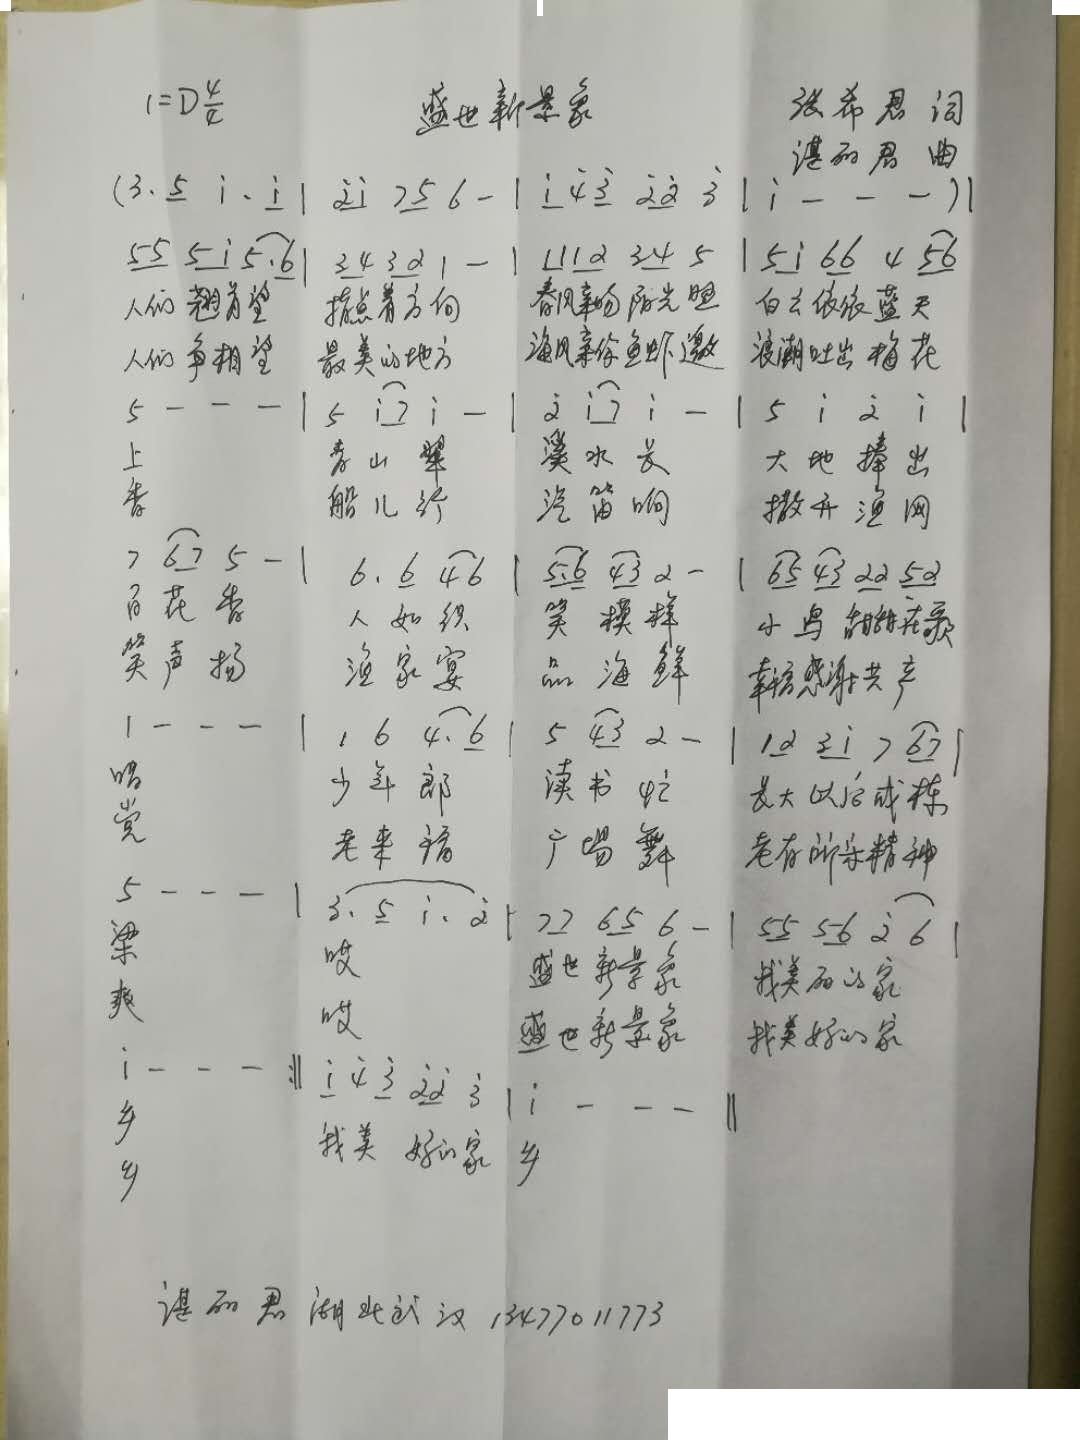 1=D 4/4 盛世新景象 张希君 词
谌丽君 曲
(3. 5 i. i | 2i 75 6 - | i 4 3 22 3 | i - - - )|
55 5i 5.6 | 34 32 1 - | 1112 34 5 | 5i 66 4 56
人们翘首望 指点着方向 春风幸福阳光照 白云依依蓝天
人们争相望 最美的地方 海风亲你鱼虾邀 浪潮吐出梅花
5 - - - | 5 i7 i - | 2 i7 i - | 5 i 2 i |
上 青山翠 溪水长 大地捧出
香 船儿行 汽笛响 撒开渔网
7 67 5 - | 6. 6 46 | 5.6 43 2 - | 65 43 22 52
百花香 人如织 笑模样 小鸟甜甜在歌
笑声扬 渔家宴 品海鲜 幸福感谢共产
1 - - - | 1 6 4.6 | 5 43 2 - | 12 3i 7 67 |
唱 少年郎 读书忙 长大以后成栋
党 老来福 广场舞 老有所乐精神
5 - - - | 3. 5 i. 2 | 77 65 6 - | 55 56 2 6 |
梁 哎 盛世新景象 我美丽的家
爽 哎 盛世新景象 我美好的家
i - - - :|| i 4 3 22 3 | i - - - ||
乡 我美好的家 乡
乡
谌丽君 湖北武汉 13477011773